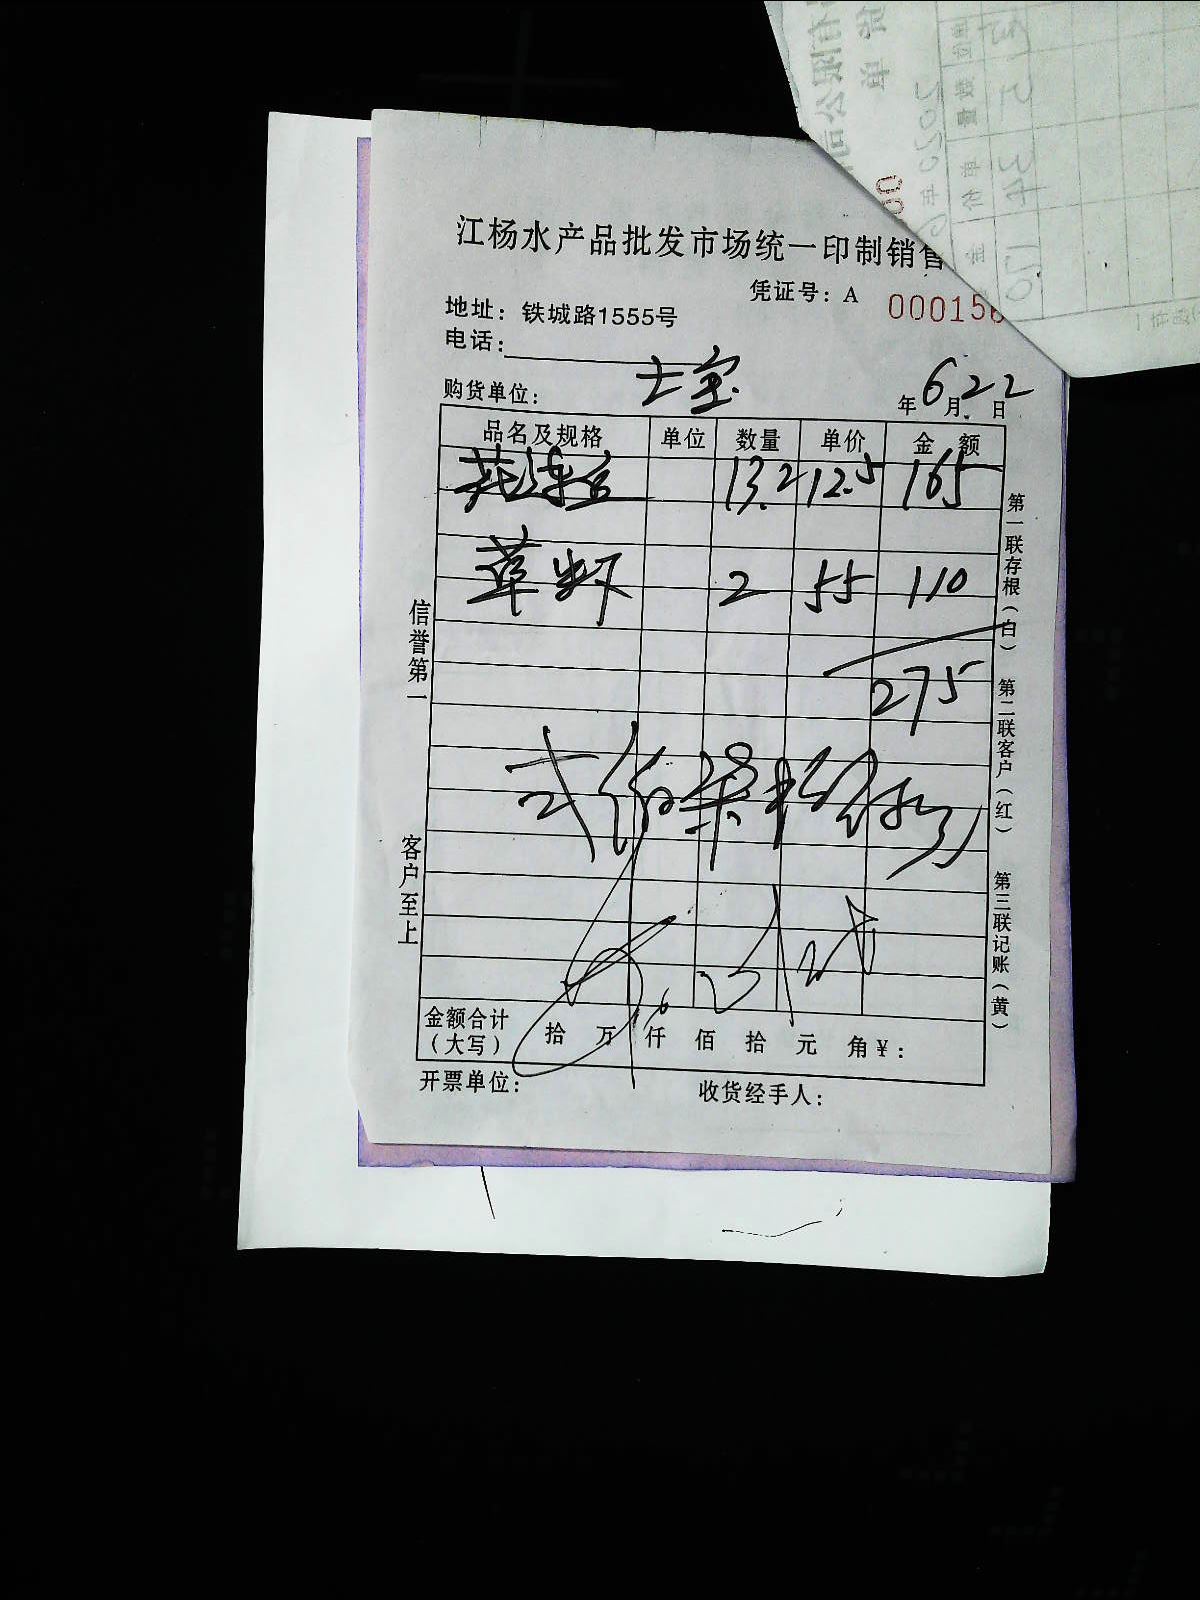 江杨水产品批发市场统一印制销售
凭证号：A 000156
地址：铁城路1555号
电话：
购货单位： 士宝 年6月22日
品名及规格 单位 数量 单价 金 额
花连 13.2 12.5 165
草虾 2 55 110
275
弍佰柒拾伍
金额合计（大写） 拾 万 仟 佰 拾 元 角￥：
开票单位： 收货经手人：
信誉第一
客户至上
第一联存根（白）
第二联客户（红）
第三联记账（黄）